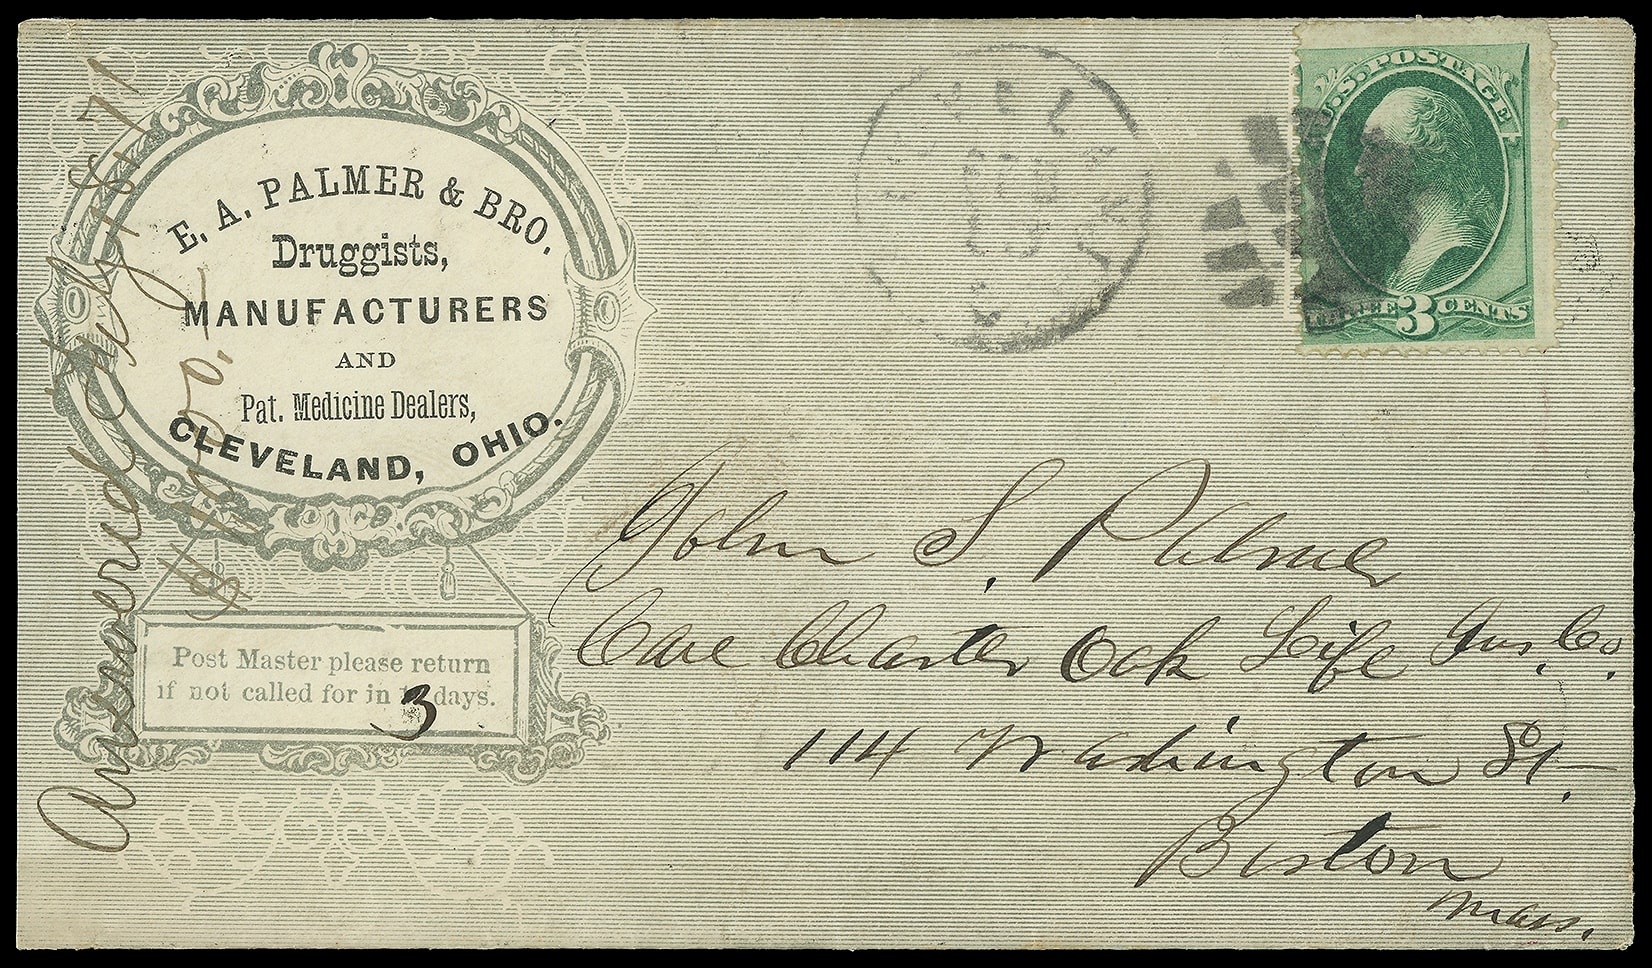 E. A. PALMER & BRO.
Druggists,
MANUFACTURERS
AND
Pat. Medicine Dealers,
CLEVELAND, OHIO.
Post Master please return
if not called for in 3 days.
Answered Feby 18/71
CLEVELAND
FEB
U.S. POSTAGE
THREE 3 CENTS
John S. Palmer
Care Charter Oak Life Ins. Co.
114 Washington St.
Boston
Mass.